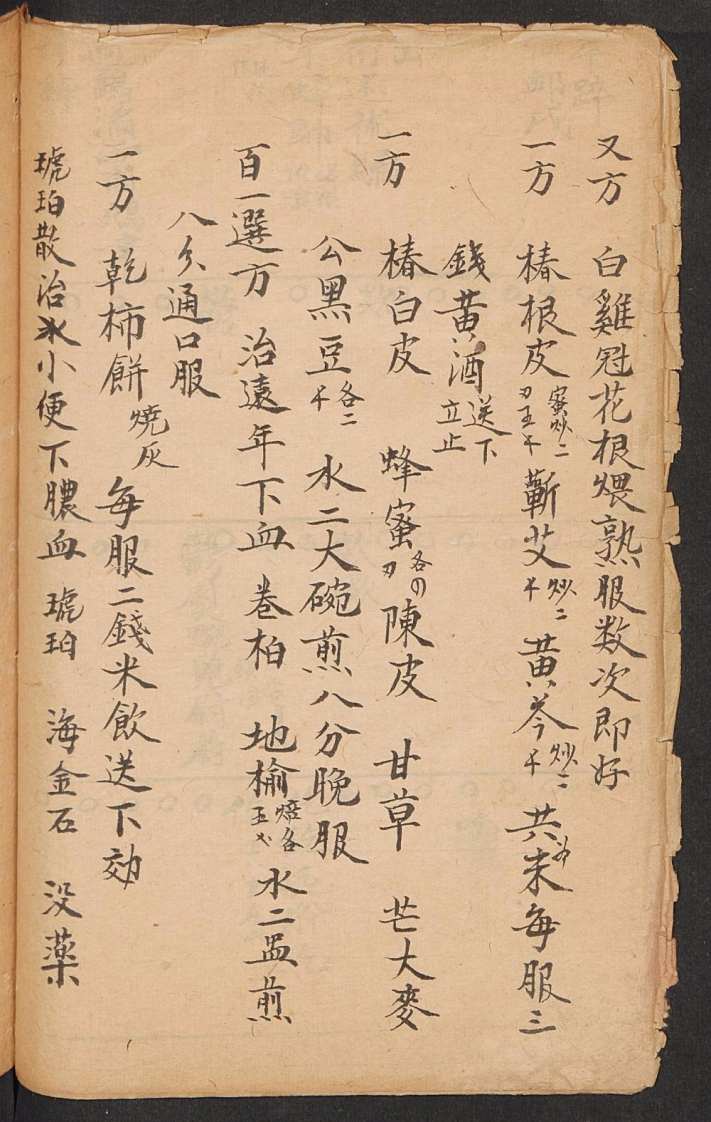 又方 白雞冠花根煨熟服数次即好
一方 椿根皮蜜炒二刃五千蘄艾炒二千黄芩炒二千共为末每服三
錢黄酒送下立止
一方 椿白皮 蜂蜜各刃陳皮 甘草 芒大麥
公黑豆各二千 水二大碗煎八分晚服
百一選方 治遠年下血 卷柏 地榆焙各五 水二盅煎
八分通口服
一方 乾柿餅燒灰 每服二錢米飲送下効
琥珀散治小便下膿血 琥珀 海金石 没薬